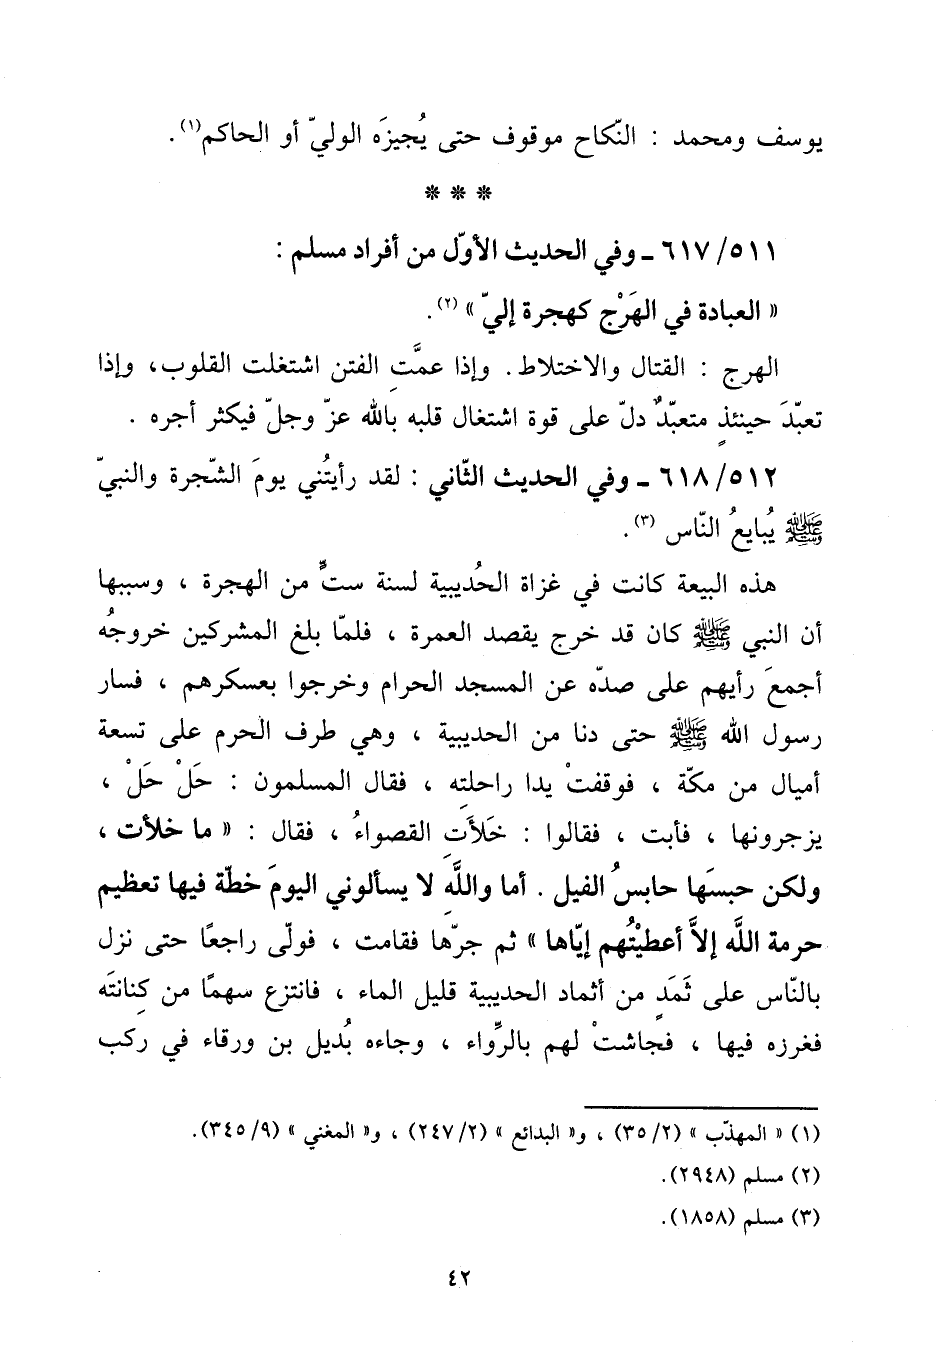 يوسف ومحمد : النّكاح موقوف حتى يُجيزَه الوليّ أو الحاكم(١).
* * *
٦١٧/٥١١ ـ وفي الحديث الأوّل من أفراد مسلم :
« العبادة في الهَرْج كهجرة إليّ » (٢).
الهرج : القتال والاختلاط. وإذا عمَّتِ الفتن اشتغلت القلوب، وإذا
تعبّدَ حينئذٍ متعبّدٌ دلّ على قوة اشتغال قلبه بالله عزّ وجلّ فيكثر أجره .
٦١٨/٥١٢ ـ وفي الحديث الثّاني : لقد رأيتُني يومَ الشّجرة والنبيّ
ﷺ يُبايعُ النّاس (٣).
هذه البيعة كانت في غزاة الحُديبية لسنة ستٍّ من الهجرة ، وسببها
أن النبي ﷺ كان قد خرج يقصد العمرة ، فلمّا بلغ المشركين خروجُه
أجمعَ رأيهم على صدّه عن المسجد الحرام وخرجوا بعسكرهم ، فسار
رسول الله ﷺ حتى دنا من الحديبية ، وهي طرف الحرم على تسعة
أميال من مكّة ، فوقفتْ يدا راحلته ، فقال المسلمون : حَلْ حَلْ ،
يزجرونها ، فأبت ، فقالوا : خَلأَتِ القصواءُ ، فقال : « ما خلأت ،
ولكن حبسَها حابسُ الفيل . أما واللَّهِ لا يسألوني اليومَ خطّة فيها تعظيم
حرمة اللَّه إلاَّ أعطيْتُهم إيّاها » ثم جرّها فقامت ، فولّى راجعًا حتى نزل
بالنّاس على ثَمَدٍ من أثماد الحديبية قليل الماء ، فانتزع سهمًا من كِنانتَه
فغرزه فيها ، فجاشتْ لهم بالرِّواء ، وجاءه بُديل بن ورقاء في ركب
(١) « المهذّب » (٣٥/٢) ، و« البدائع » (٢٤٧/٢) ، و« المغني » (٣٤٥/٩).
(٢) مسلم (٢٩٤٨).
(٣) مسلم (١٨٥٨).
٤٢